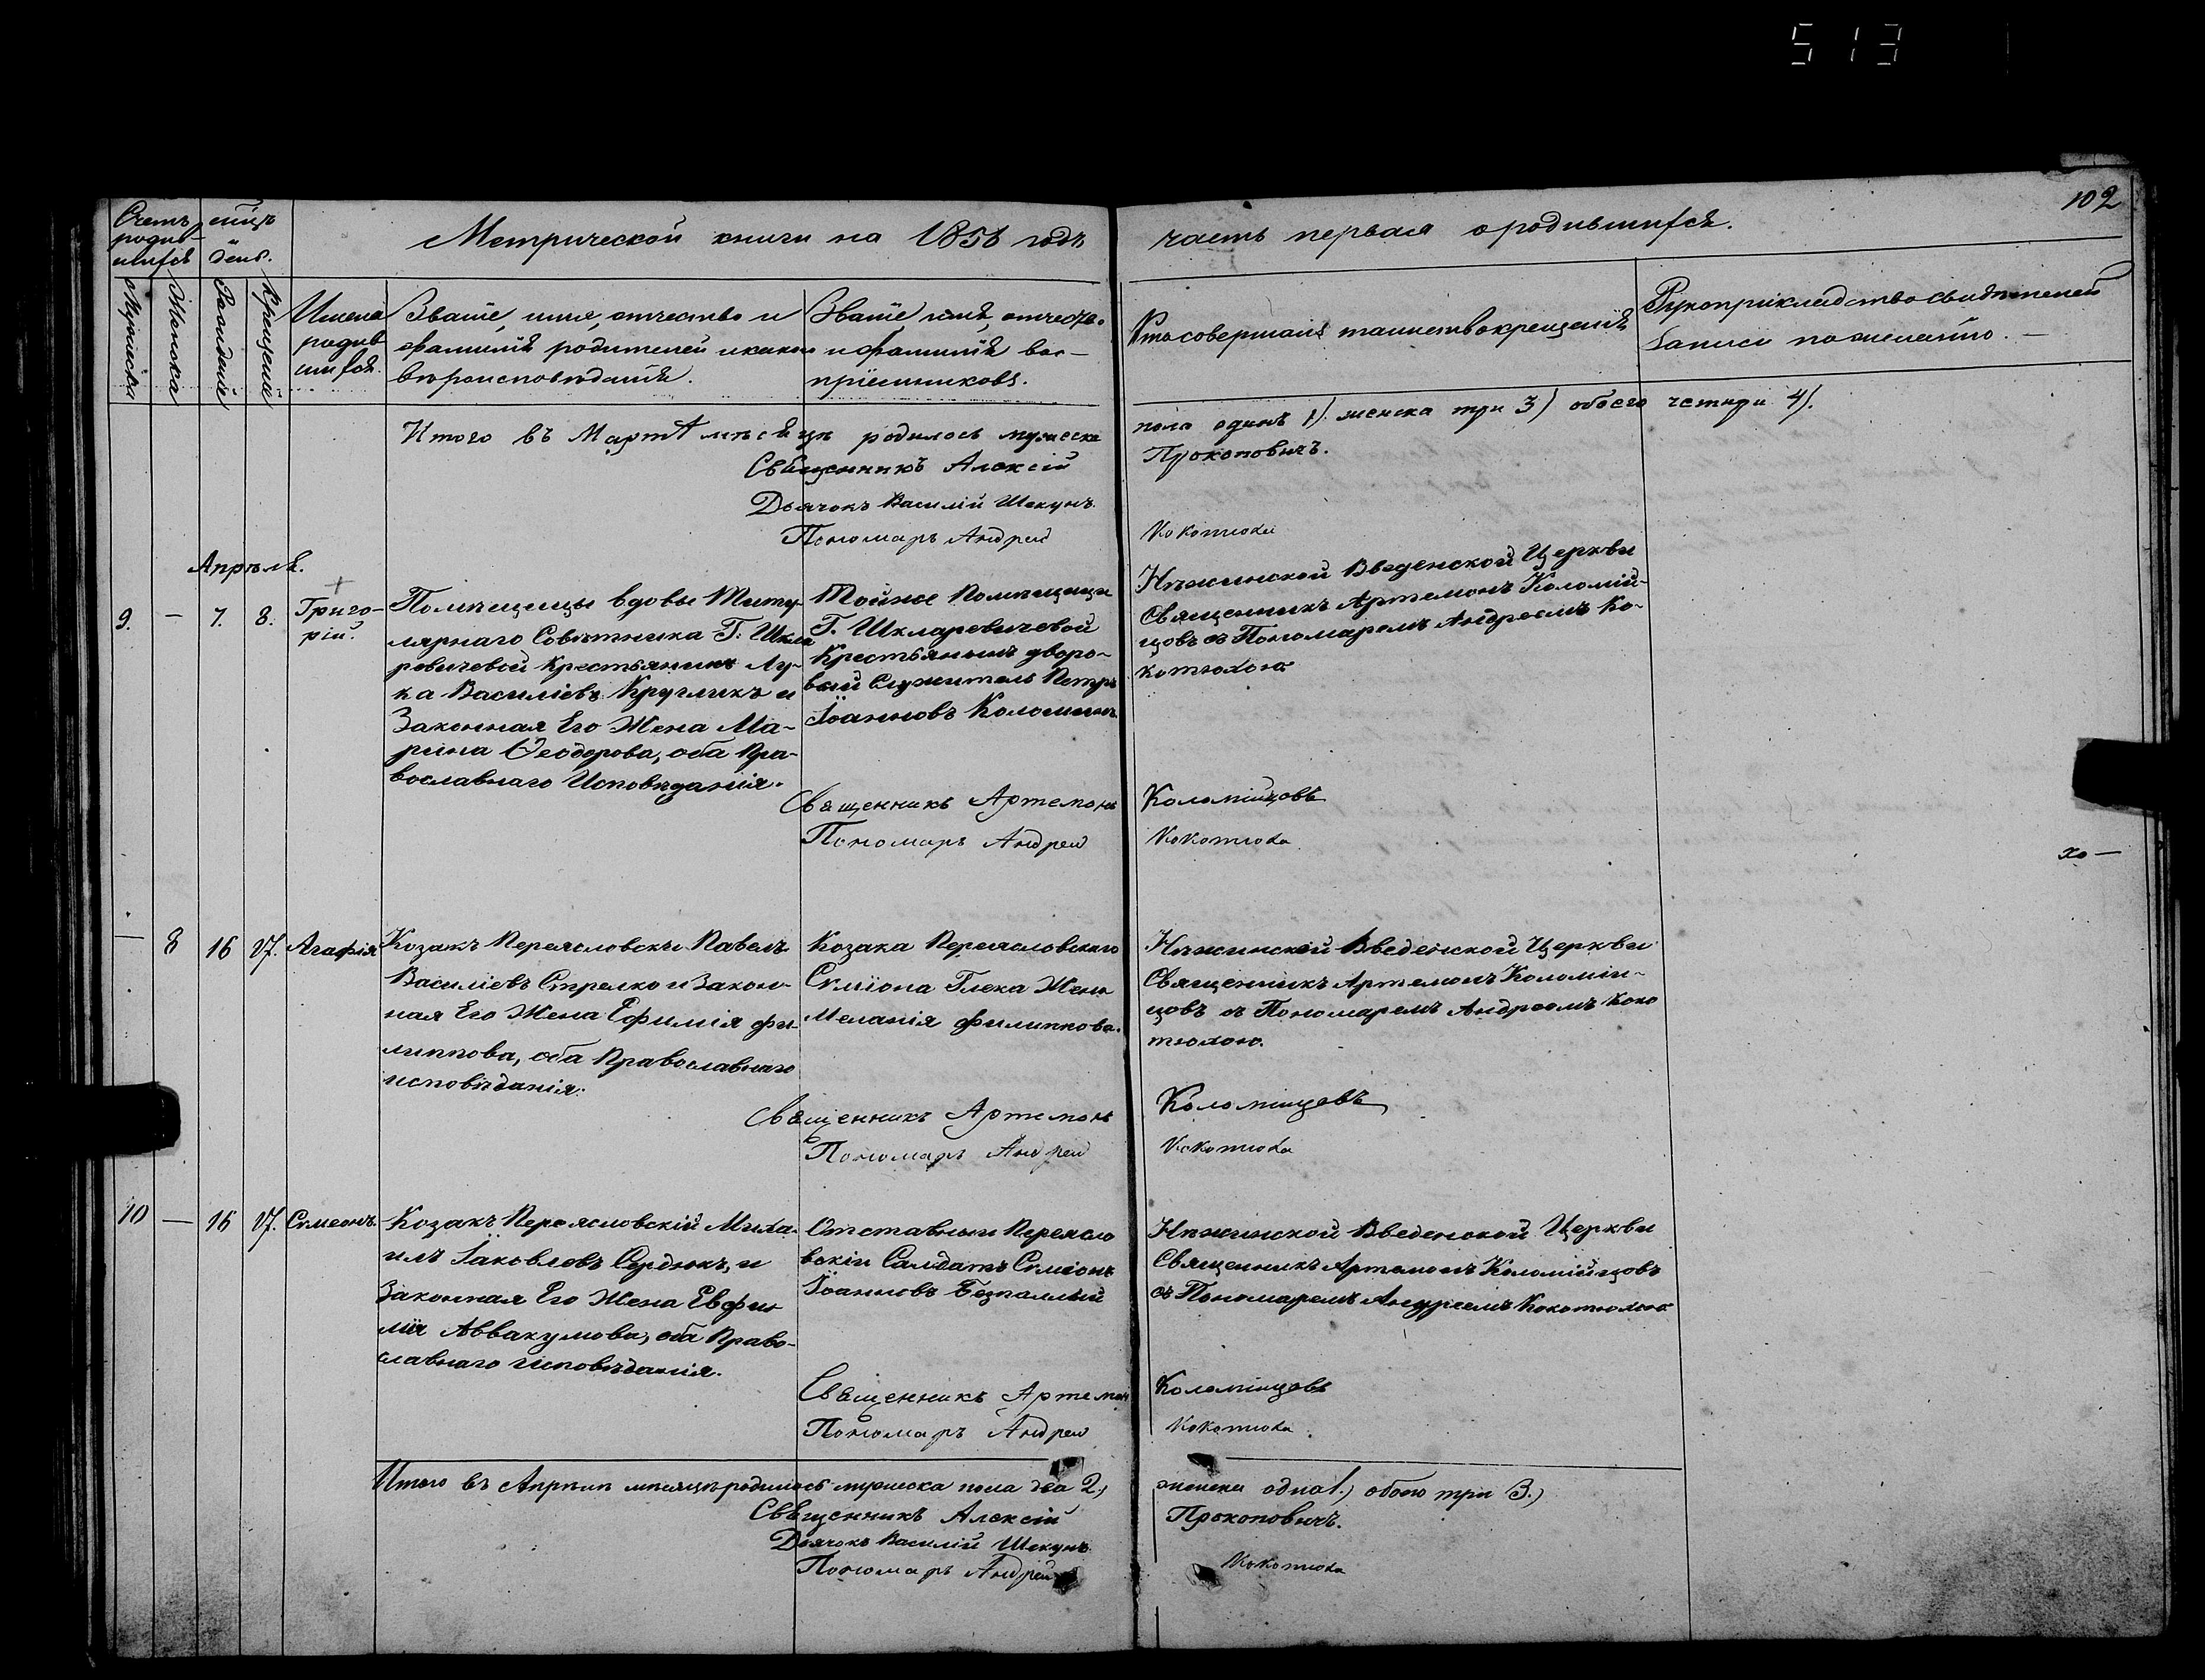 513
102
Счетъ родив-шихся
мѣсяцъ день.
Метрической книги на 1856 годъ
часть первая о родившихся.
Мужеска
Женска
Рожденіе
Крещеніе
Имена
родив
шихся.
Званіе, имя, отчество и
фамилія родителей и какого
вѣроисповѣданія.
Званіе, имя, отчество
и фамилія вос-
пріемниковъ.
Кто совершалъ таинство крещенія
Рукоприкладство свидѣтелей
записи по желанію.
Итого въ Мартѣ мѣсяцѣ родилось мужеска
пола одинъ 1) женска три 3) обоего четыри 4).
Священникъ Алексій
Прокоповичъ.
Дьячокъ Василій Шекунъ.
Пономарь Андрей
Кокотюха
Апрѣля.
9. — 7. 8.
Григо-
рій.
Помѣщицы вдовы Титу-
лярнаго Совѣтника Г: Шкля
ревичевой Крестьянинъ Лу-
ка Василіевъ Кругликъ и
Законная Его Жена Ма-
рина Ѳеодорова, оба Пра-
вославнаго Исповѣданія.
Тойже Помѣщицы
Г. Шкларевичевой
Крестьянинъ дворо-
вый Служитель Петръ
Іоанновъ
Нѣжинской Введенской Церкви
Священникъ Артемонъ Коломій-
цовъ съ Пономаремъ Андреемъ Ко-
котюхою
Священникъ Артемонъ
Коломійцовъ
Пономарь Андрей
Кокотюха
— 8 16 17. Агафія
Козакъ Переясловскій Павелъ
Василіевъ Стрелко и Закон-
ная Его Жена Ефимія Фи-
липпова, оба Православнаго
исповѣданія.
Козака Переясловскаго
Симіона Глека Жена
Меланія Филиппова.
Нѣжинской Введенской Церкви
Священникъ Артемонъ Коломій-
цовъ съ Пономаремъ Андреемъ Коко
тюхою.
Священникъ Артемонъ
Коломійцовъ
Пономарь Андрей
Кокотюха
10 — 16 17. Симеонъ.
Козакъ Переясловскій Миха-
илъ Іаковлевъ Сердюкъ, и
Законная Его Жена Евфи
мія Аввакумова, оба Право-
славнаго исповѣданія.
Отставный Переясло
вскій Салдатъ Симіонъ
Іоанновъ Безпалый
Нѣжинской Введенской Церкви
Священникъ Артемонъ Коломійцовъ
съ Пономаремъ Андреемъ Кокотюхою
Священникъ Артемон
Коломійцовъ
Пономарь Андрей
Кокотюха
Итого въ Апрѣлѣ мѣсяцѣ родилось мужеска пола два 2.)
женска одна 1.) обоего три 3.)
Священникъ Алексій
Прокоповичъ.
Дьячокъ Василій Шекунъ.
Пономарь Андрей
Кокотюха